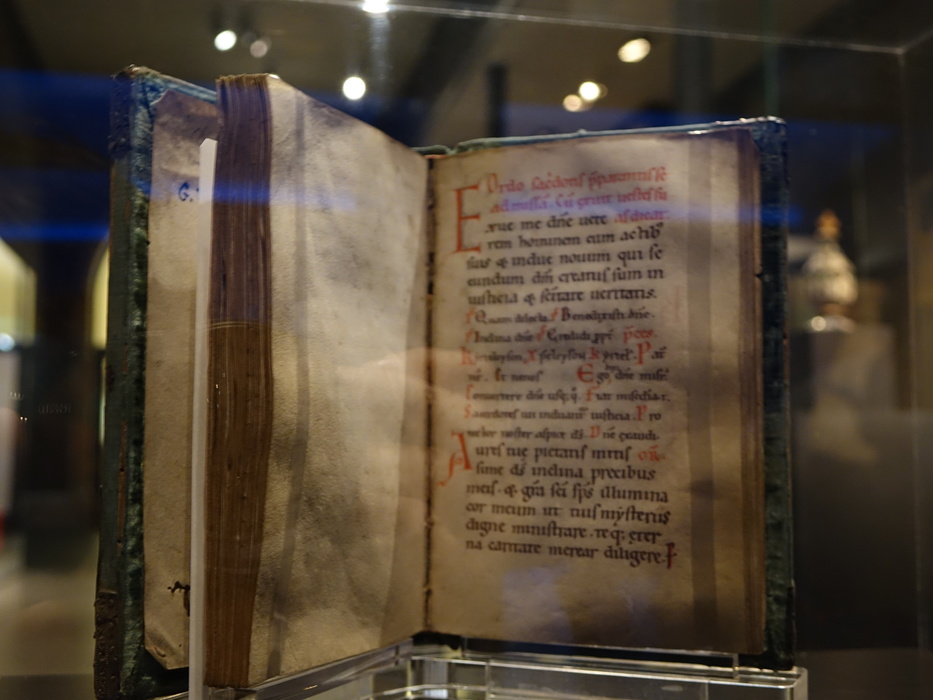 G.
Ordo sacdotis pparantis se
ad missa. Cu erint uestes su
Exue me dñe uere ... dicat.
rem hominem cum actib'
suis & indue nouum qui se
cundum dm creatus sum in
iusticia & scitate ueritatis.
Quam dilecta. Benedixisti dñe.
Inclina dñe. Credidi ppt. pces.
Kyrieleyson, Xpeleyson kyriel. Pat
nr. Et ne nos Ego dixi dñe mise
Conuertere dñe usq; q. Fiat misedia t.
Sacerdotes tui induant iusticia. Pro
tector noster aspice ds. Dñe exaudi.
Aures tue pietatis mitis oR.
sime ds inclina precibus
meis. & gra sci sps illumina
cor meum ut tuis mysteriis
digne ministrare. te q; eter
na caritate merear diligere.